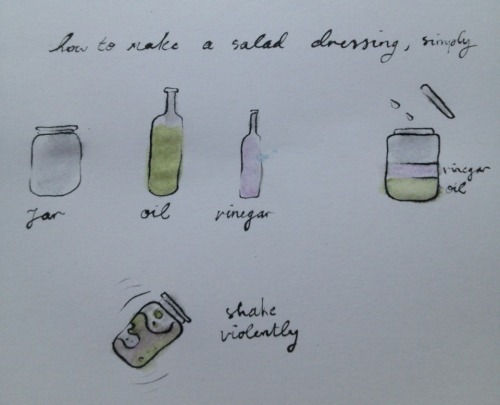 how to make a salad dressing, simply
jar
oil
vinegar
vinegar
oil
shake
violently